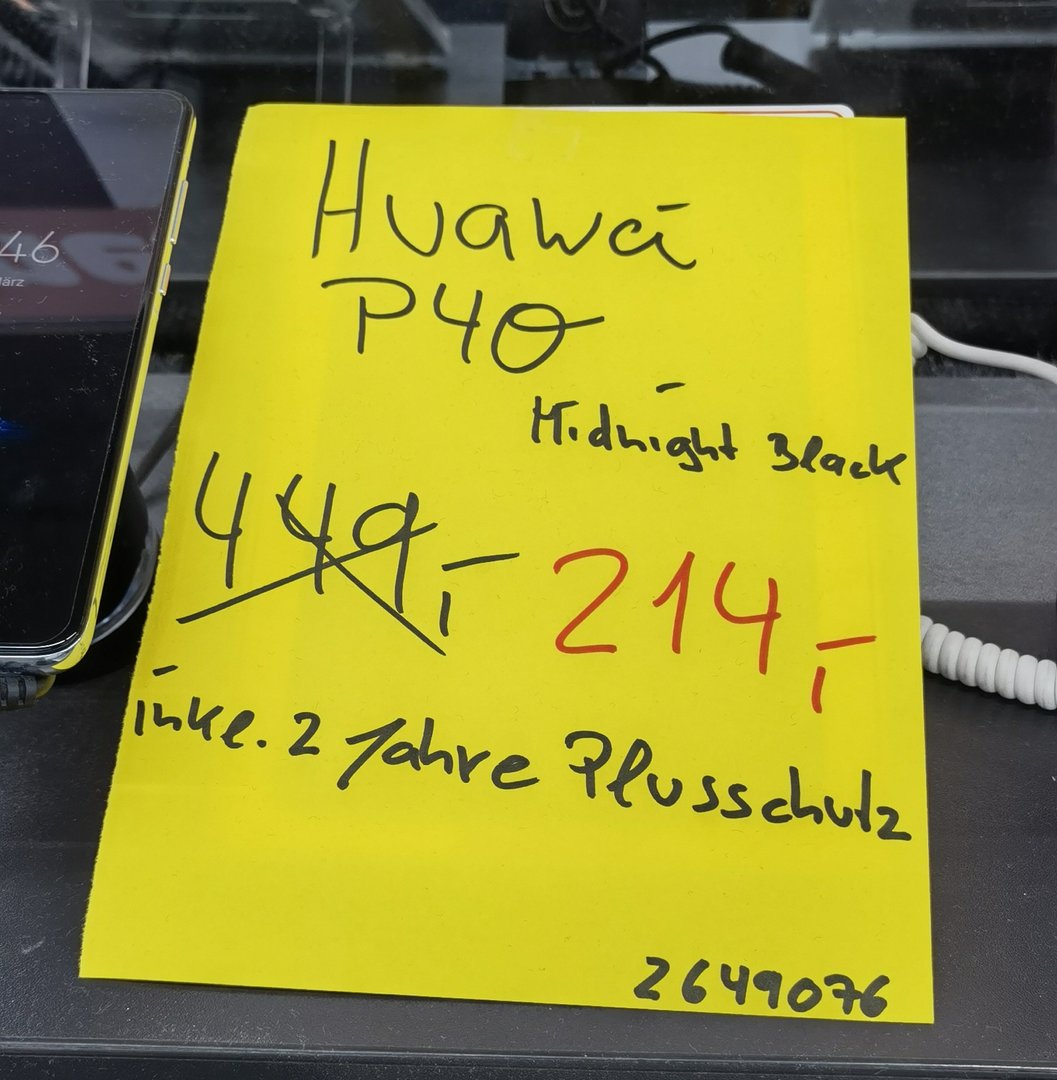 46
ärz
Huawei
P40
Midnight Black
449,- 214,-
inkl. 2 Jahre Plusschutz
2649076